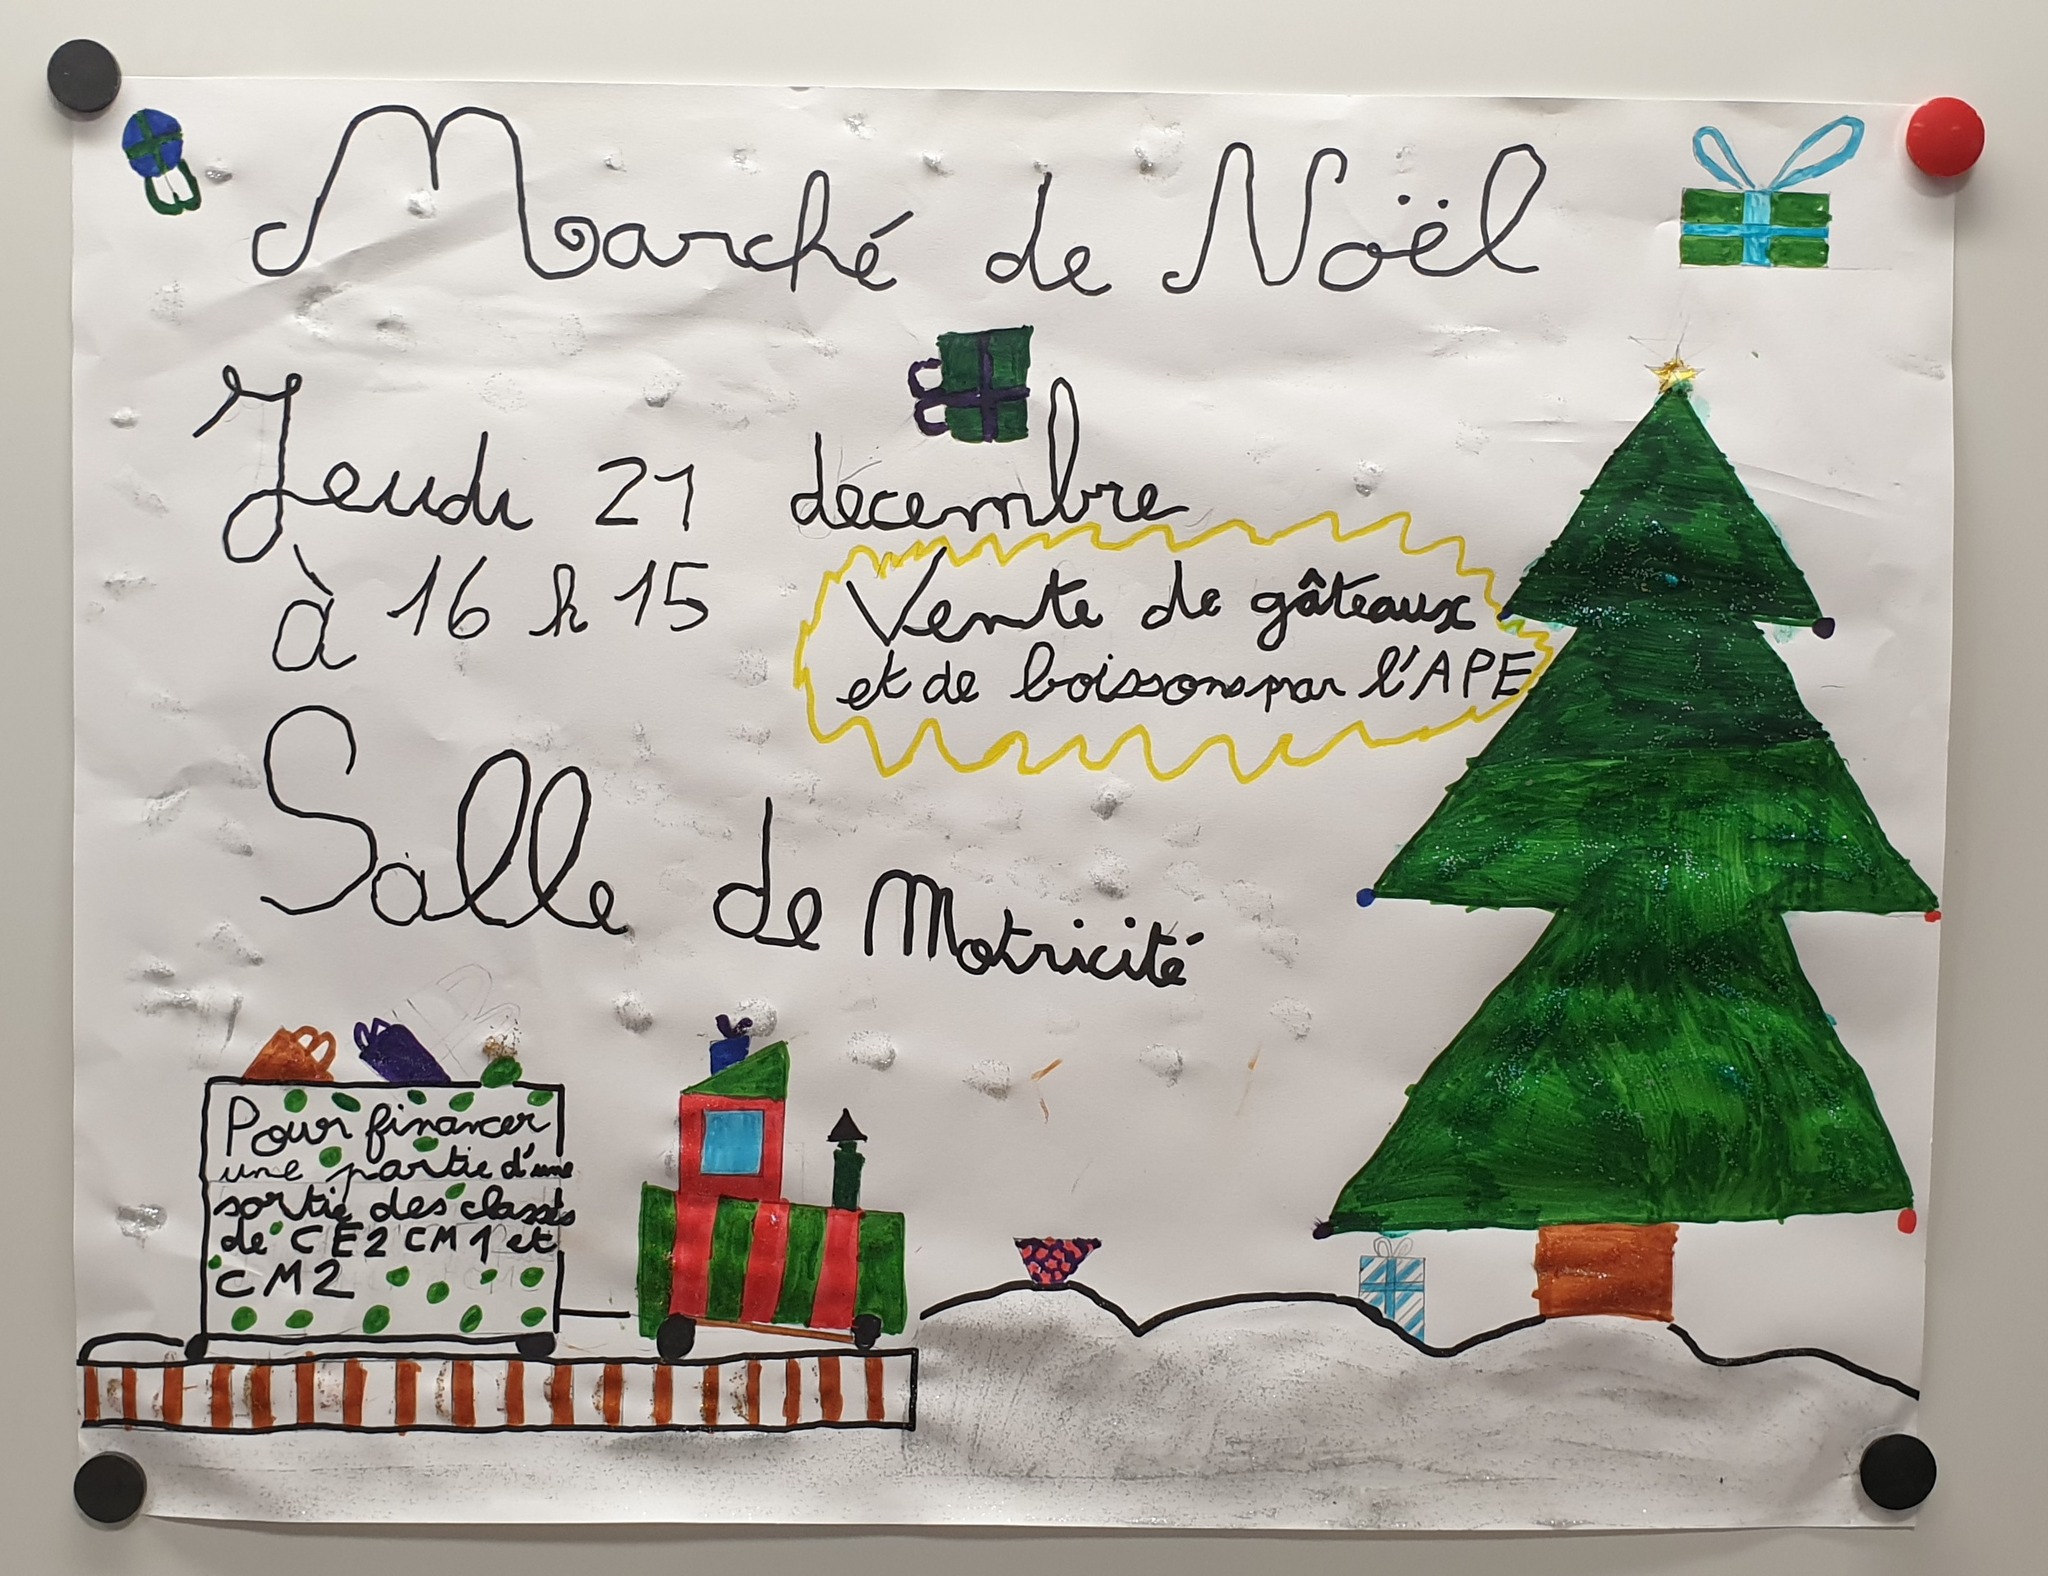 Marché de Noël
Jeudi 21 decembre
à 16 h 15
Vente de gâteaux
et de boissons par l'APE
Salle de Motricité
Pour financer
une partie d'une
sortie des classes
de CE2 CM1 et
CM2